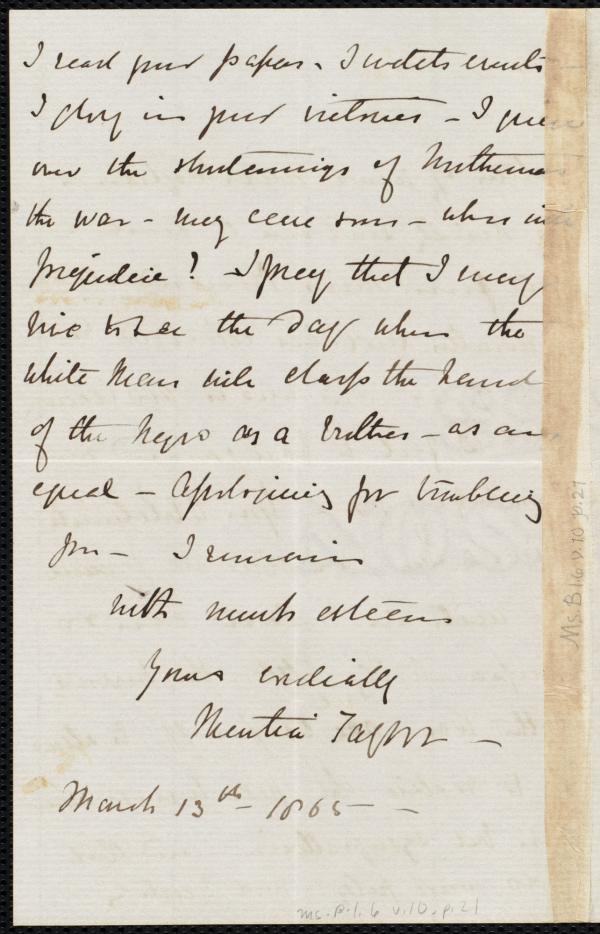 I read your papers. I watch events
I glory in your victories – I grieve
over the shortcomings of Northerners
the war – may cease soon – when will
prejudice! – I pray that I may
live to see the day when the
white man will clasp the hand
of the Negro as a brother – as an
equal – Apologising for troubling
you – I remain
with much esteem
Yours cordially
Mentia Taylor –
March 13th – 1865 – –
Ms. B.1.6 v.10 p.21
Ms. B.1.6 v.10, p.21